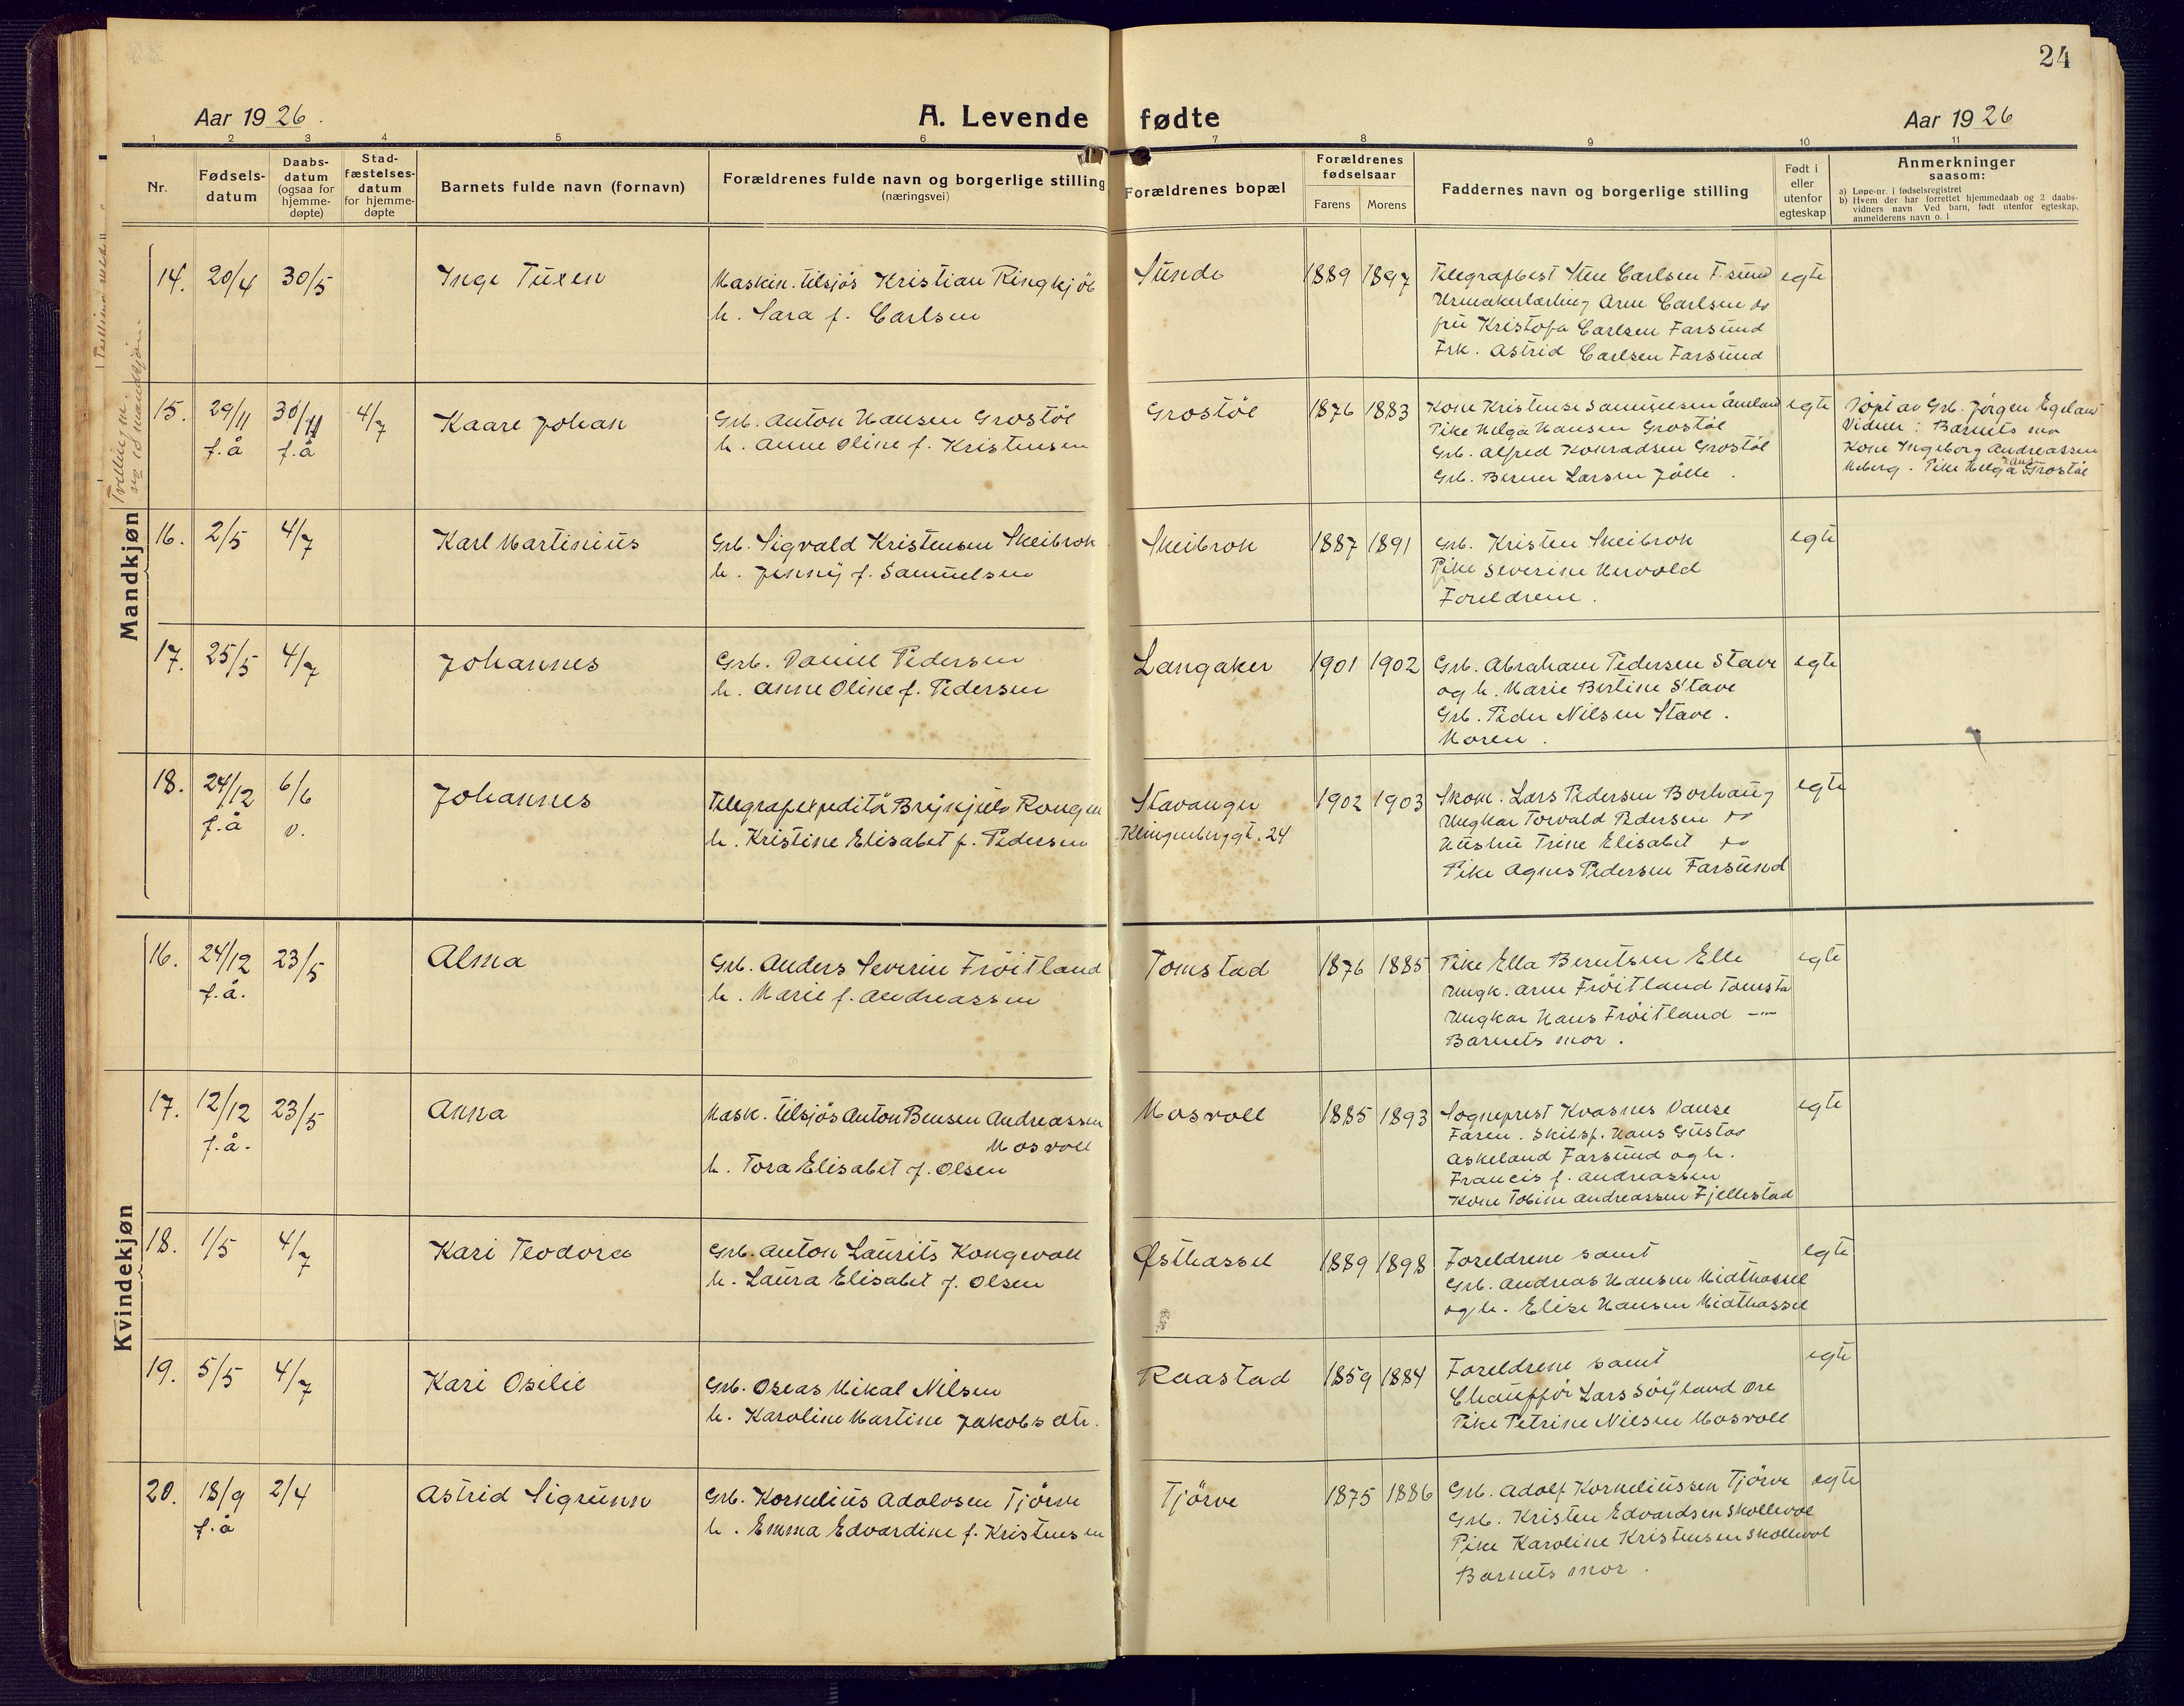 24
Aar 1926.
A. Levende fødte
Aar 1926
1 2 3 4 5 6 7 8 9 10 11
Nr.
Fødsels-
datum
Daabs-
datum
(ogsaa for
hjemme-
døpte)
Stad-
fæstelses-
datum
for hjemme-
døpte
Barnets fulde navn (fornavn)
Forældrenes fulde navn og borgerlige stilling
(næringsvei)
Forældrenes bopæl
Forældrenes
fødselsaar
Farens Morens
Faddernes navn og borgerlige stilling
Født i
eller
utenfor
egteskap
Anmerkninger
saasom:
a) Løpe-nr. i fødselsregistret
b) Hvem der har forrettet hjemmedaab og 2 daabs-
vidners navn Ved barn, født utenfor egteskap,
anmelderens navn o. l
Mandkjøn
14. 20/4 30/5
Inge Tuxen
Maskin. tilsjös Kristian Ringkjöb
h. Sara f. Carlsen
Sunde
1889 1897
Telegrafbest Sten Carlsen F.sund
Urmakerlærling Arne Carlsen do
fru Kristofa Carlsen Farsund
Frk. Astrid Carlsen Farsund
egte
15. 29/11 30/11 4/7
f.å f.å
Kaare Johan
Grb. Anton Hansen Grostöl
h. Anne Oline f. Kristensen
Grostöl
1876 1883
Kone Kristense Samuelsen Åmland
Pike Helga Hansen Grostöl
Grb. Alfred Konradsen Grostöl
Grb. Berner Larsen Jölle.
egte
Döpt av Grb. Jörgen Egeland
Vidner: Barnets mor
Kone Ingeborg Andreassen
Meberg. Pike Helga Hansen Grostöl
16. 2/5 4/7
Karl Martinius
Grb. Sigvald Kristensen Skeibrok
h. Jenny f. Samuelsen
Skeibrok
1887 1891
Grb. Kristen Skeibrok
Pike Severine Hervold
Foreldrene.
egte
17. 25/5 4/7
Johannes
Grb. Daniel Pedersen
h. Anne Oline f. Pedersen
Langaker
1901 1902
Grb. Abraham Pedersen Stave
og h. Marie Bertine Stave
Grb. Peder Nilsen Stave.
Moren.
egte
18. 24/12 6/6
f.å v.
Johannes
Telegrafexpeditör Brynjulv Rongen
h. Kristine Elisabet f. Pedersen
Stavanger
Klingenberggt. 24
1902 1903
Skom. Lars Pedersen Borhaug
Ungkar Torvald Pedersen do
Hustru Trine Elisabet do
Pike Agnes Pedersen Farsund
egte
Kvindekjøn
16. 24/12 23/5
f.å.
Alma
Grb. Anders Severin Fröitland
h. Marie f. Andreassen
Tomstad
1876 1885
Pike Ella Berntsen Elle
Ungk. Arne Fröitland Tomsta
Ungkar Hans Fröitland -"-
Barnets mor.
egte
17. 12/12 23/5
f.å.
Anna
Mask. tilsjös Anton Bensen Andreassen
Mosvoll
h. Tora Elisabet f. Olsen
Mosvoll
1885 1893
Sogneprest Kvasnes Vanse
Faren. Skibsf. Hans Gustav
Askeland Farsund og h.
Francis f. Andreassen
Kone Tobine Andreassen Fjellestad
egte
18. 1/5 4/7
Kari Teodora
Grb. Anton Laurits Kongevoll
h. Laura Elisabet f. Olsen
Østhassel
1889 1898
Foreldrene samt
Grb. Andreas Hansen Midthassel
og h. Elise Hansen Midthassel
egte
19. 5/5 4/7
Kari Osilie
Grb. Oseas Mikal Nilsen
h. Karoline Martine Jakobsdtr.
Raastad
1859 1884
Foreldrene samt
Chaufför Lars Söyland Ore
Pike Petrine Nilsen Mosvoll
egte
20. 18/9 2/4
f.å
Astrid Sigrunn
Grb. Kornelius Adolvsen Tjörve
h. Emma Edvardine f. Kristensen
Tjörve
1875 1886
Grb. Adolf Korneliussen Tjörve
Grb. Kristen Edvardsen Skollevol
Pike Karoline Kristensen Skollevol
Barnets mor.
egte